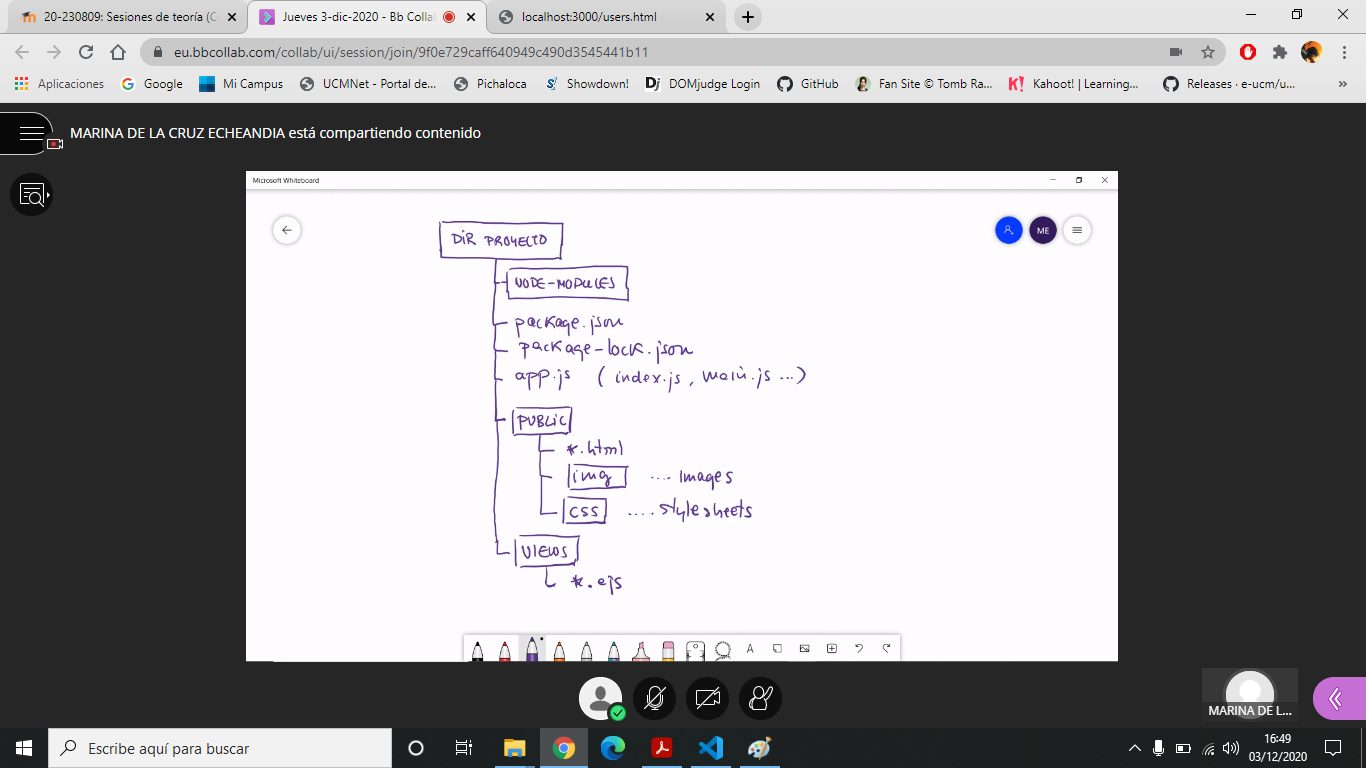 20-230809: Sesiones de teoría (C
Jueves 3-dic-2020 - Bb Colla
localhost:3000/users.html
eu.bbcollab.com/collab/ui/session/join/9f0e729caff640949c490d3545441b11
Aplicaciones Google Mi Campus UCMNet - Portal de... Pichaloca Showdown! DOMjudge Login GitHub Fan Site © Tomb Ra... Kahoot! | Learning... Releases · e-ucm/u... »
MARINA DE LA CRUZ ECHEANDIA está compartiendo contenido
Microsoft Whiteboard
ME
DIR PROYECTO
NODE-MODULES
package.json
package-lock.json
app.js (index.js, main.js ...)
PUBLIC
*.html
img .... images
css .... stylesheets
VIEWS
*.ejs
A
MARINA DE L...
Escribe aquí para buscar
16:49
03/12/2020